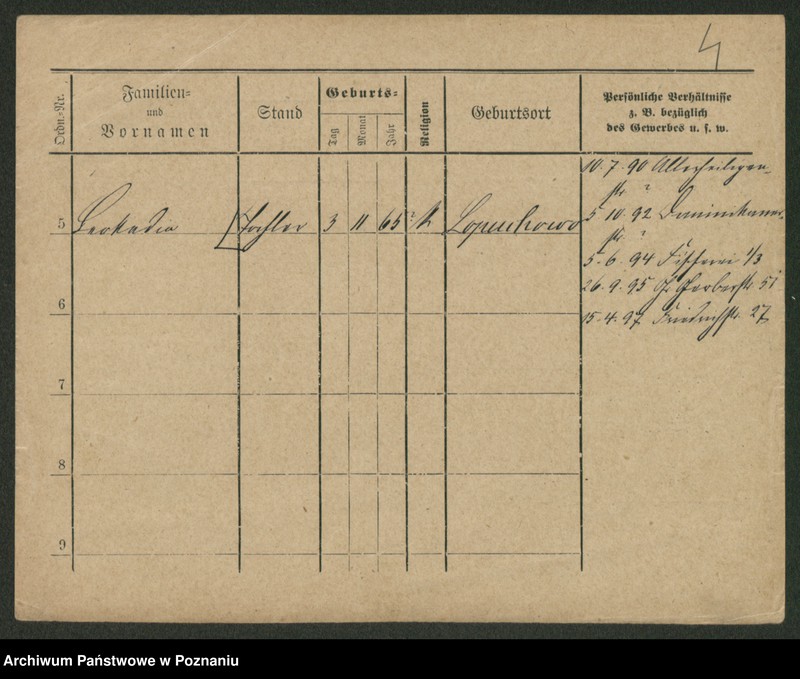 4
Ordn.=Nr.
Familien=
und
Vornamen
Stand
Geburts=
Tag
Monat
Jahr
Religion
Geburtsort
Persönliche Verhältnisse
z. B. bezüglich
des Gewerbes u. s. w.
5 Leokadia Tochter 3 11 65 k Lopuchowo
6
7
8
9
10.7.90 Allerheiligen-
str ?
5 10.92 Dominikaner-
str. ?
5.6.94 Fischerei 1/3
26.9.95 Gr Gerberstr. 51
15.4.97 Friedrichstr. 27
Archiwum Państwowe w Poznaniu